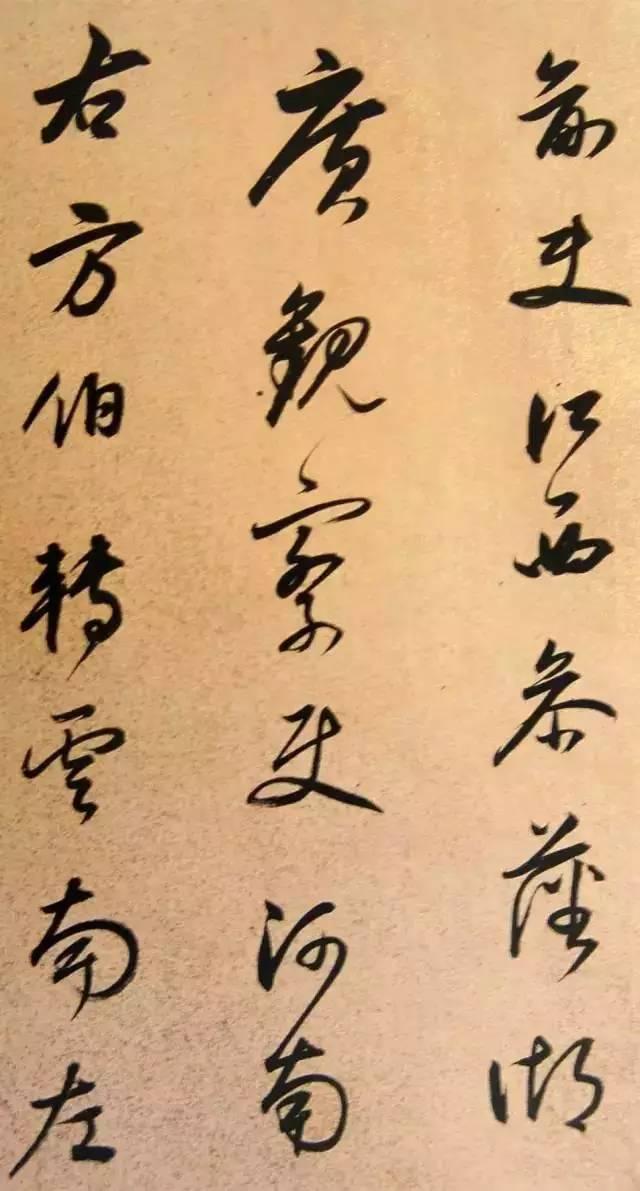 更江西叅藩湖
廣觀察使河南
右方伯轉雲南左